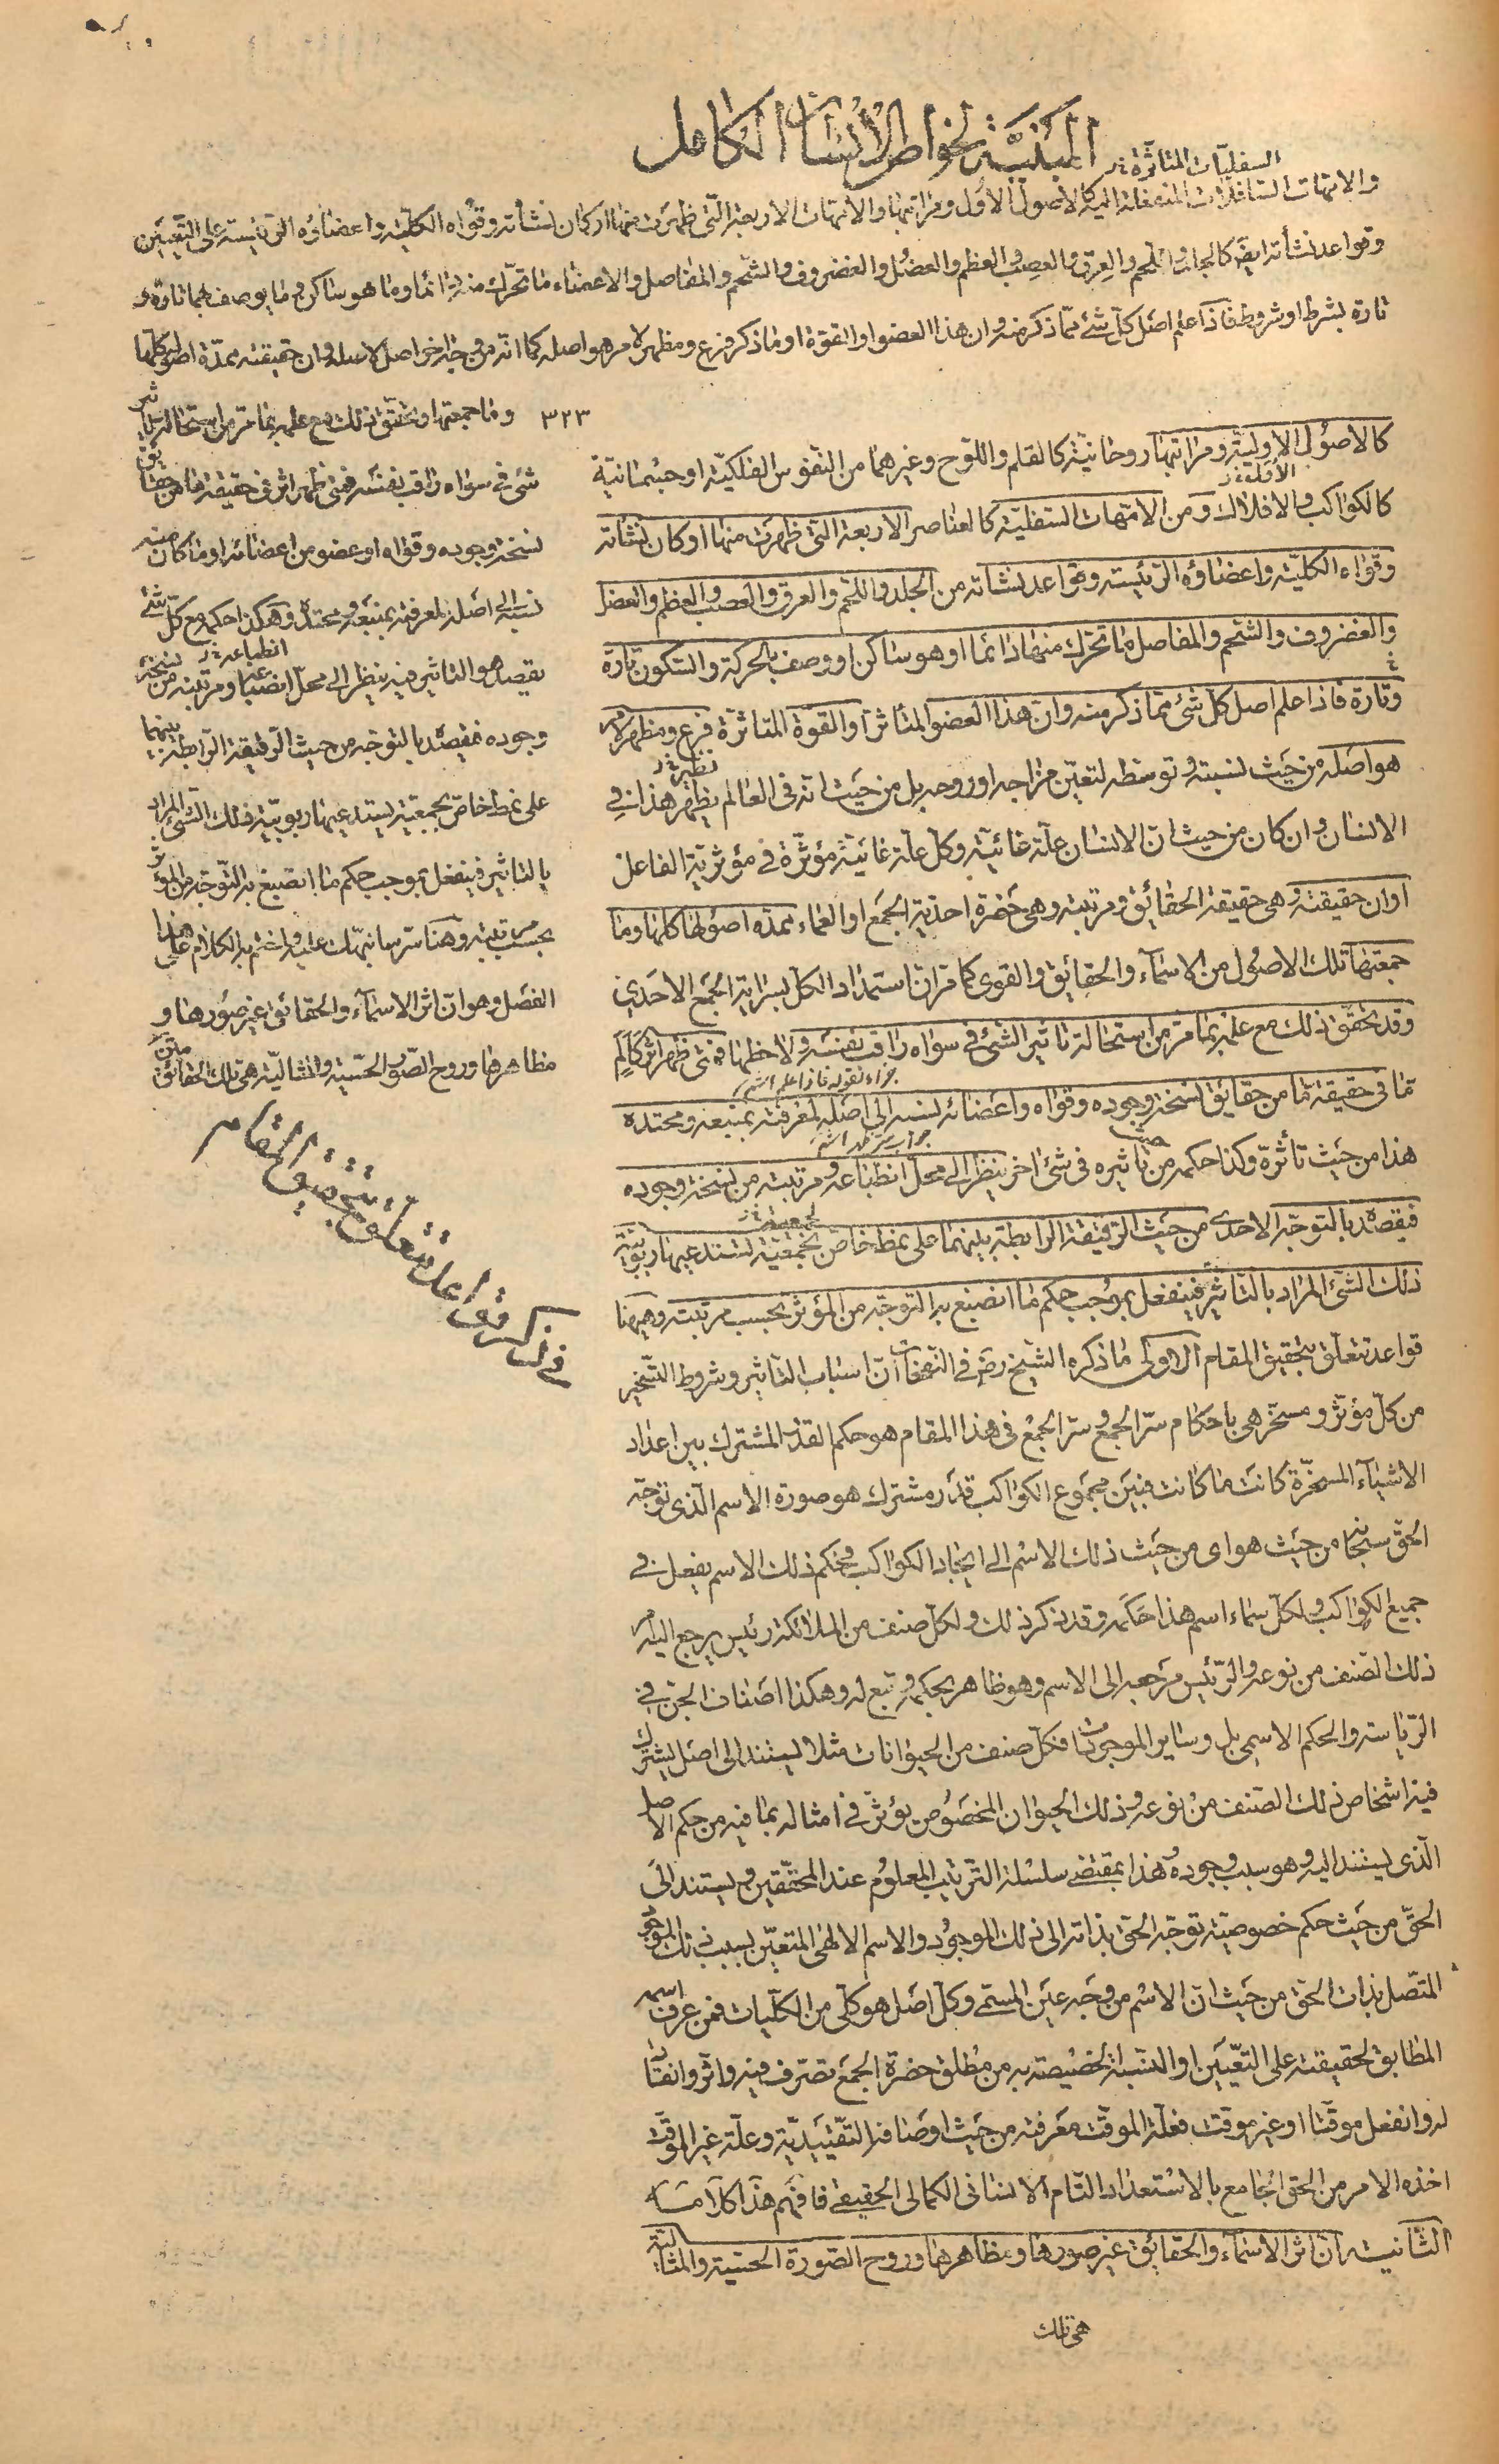 المبنية لخواص الانسان الكامل
السفليات المتأثرة
والامهات السافلات المنفعلة اليه كالاصول الأول ومراتبها والامهات الاربعة التى ظهرت منها اركان نشأته وقواه الكلية واعضاؤه الرئيسة على التعيين
وقواعد نشأته ايضا كالجلد واللحم والعرق والعصب والعظم والعضل والغضروف والشحم والمفاصل والاعضاء ما تحرك منها دائما وما هو ساكن وما يوصف بهما تارة و
تارة بشرط او شروط فاذا علم اصل كل شئ مما ذكر منه وان هذا العضو او القوة او ما ذكر فرع ومظهر لامر هو اصله كما انه من وجه اخر اصل لاصله وان حقيقته ممدة اصوله كلها
وما جمعتها وتحقق ذلك مع علمه بما مر من استحالة تأثير
شئ فى سواه راقب نفسه فمتى ظهر اثر فى حقيقة ما من حقائق
نسخة وجوده وقواه او عضو من اعضائه او ما كان منه
نسبه الى اصله لمعرفته بمنبعه ومحتده وهكذا حكمه مع كل شئ
انطباعه
يقصد هو التاثير فيه ينظر الى محل انضباعه ومرتبته من نسخة
وجوده فيقصده بالتوجه من حيث الرقيقة الرابطة بينهما
على نمط خاص بجمعية يستدعيها ربوبية ذلك الشئ المراد
بالتاثير فينفعل بموجب حكم ما انصبغ به التوجه من المؤثر
بحسب مرتبته وهنا سر سانبهك عليه واختم به الكلام على هذا
الفصل وهو ان اثر الاسماء والحقائق غير صورها و
مظاهرها وروح الصور الحسية والمثالية هى تلك الحقائق
٣٢٣
كالاصول الاولية ومراتبها روحانية كالقلم واللوح وغيرهما من النفوس الفلكية او جسمانية
كالكواكب والافلاك ومن الامهات السفلية كالعناصر الاربعة التى ظهرت منها اركان نشأته
وقواه الكلية واعضاؤه الرئيسة وقواعد نشأته من الجلد واللحم والعرق والعصب والعظم والعضل
والغضروف والشحم والمفاصل ما تحرك منها دائما او هو ساكن او وصف بالحركة والسكون تارة
وتارة فاذا علم اصل كل شئ مما ذكر منه وان هذا العضو المتأثر او القوة المتاثرة فرع ومظهر لامر
هو اصله من حيث نسبته وتوسطه لتعين مزاجه او روحه بل من حيث انه فى العالم يظهر هذا فى
الانسان وان كان من حيث ان الانسان علة غائية وكل علة غائية مؤثرة فى مؤثرية الفاعل
او ان حقيقته وهى حقيقة الحقائق ومرتبته وهى حضرة احدية الجمع او العماء ممدة اصولها كلها وما
جمعتها تلك الاصول من الاسماء والحقائق والقوى كما مر ان استمداد الكل بسراية الجمع الاحدى
وقد تحقق ذلك مع علمه بما مر من استحالة تاثير الشئ فى سواه راقب نفسه ولاحظها فمتى ظهر اثر كامل
جزاء لقوله فاذا علم اشه
ما فى حقيقة ما من حقائق نسخة وجوده وقواه واعضائه نسبه الى اصله لمعرفته بمنبعه ومحتده
هذا من حيث تأثره وكذا حكمه من حيث تاثيره فى شئ اخر ينظر الى محل انطباعه ومرتبته من نسخة وجوده
فيقصده بالتوجه الاحدى من حيث الرقيقة الرابطة بينهما على نمط خاص بجمعية تستدعيها ربوبية
ذلك الشئ المراد بالتاثير فينفعل بموجب حكم ما انصبغ به التوجه من المؤثر بحسب مرتبته وههنا
قواعد تتعلق بتحقيق المقام الاولى ما ذكره الشيخ رض فى النفحات ان اسباب التاثير وشروط التسخير
من كل مؤثر ومسخر هى باحكام سر الجمع وسر الجمع فى هذا المقام هو حكم القدر المشترك بين اعداد
الاشياء المسخرة كانت ما كانت فبين مجموع الكواكب قدر مشترك هو صورة الاسم الذى توجه
الحق سبحانه من حيث هو اى من حيث ذلك الاسم الى ايجاد الكواكب فبحكم ذلك الاسم يفعل فى
جميع الكواكب ولكل سماء اسم هذا حكمه وقد نذكر ذلك ولكل صنف من الملائكة رئيس يرجع اليه امر
ذلك الصنف من نوعه والرئيس مرجعه الى الاسم وهو ظاهر بحكمه وتبع له وهكذا اصناف الجن فى
الرياسة والحكم الاسمى بل وساير الموجودات فكل صنف من الحيوانات مثلا يستند الى اصل يشترك
فيه اشخاص ذلك الصنف من نوعه وذلك الحيوان المخصوص يؤثر فى امثاله بما فيه من حكم الاصل
الذى يستند اليه وهو سبب وجوده هذا بمقتضى سلسلة الترتيب المعلوم عند المحققين ويستند الى
الحق من حيث حكم خصوصية توجه الحق بذاته الى ذلك الموجود والاسم الالهى المتعين بسبب ذلك الموجود
المتصل بذات الحق من حيث ان الاسم من وجه عين المسمى وكل اصل هو كلى من الكليات فمن عرف اسمه
المطابق لحقيقته على التعيين او النسبة المخصيصة به من مطلق حضرة الجمع تصرف فيه واثر وانقاد
له وانفعل موقتا او غير موقت فعلة الموقت معرفته من حيث اوصافه التقييدية وعلة غير الموقت
اخذه الامر من الحق الجامع بالاستعداد التام الانسانى الكمالى الحقيقى فافهم هذا كلامه
الثانية ان اثر الاسماء والحقائق غير صورها ومظاهرها وروح الصورة الحسية والمثالية
هى تلك
فى ذكر قواعد تتعلق بتحقيق المقام